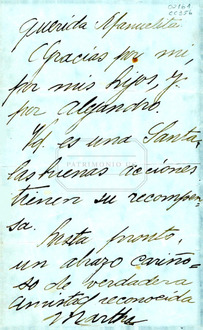 Querida Manuelita
Gracias por mi,
por mis hijos, y
por Alejandro.
Vd. es una Santa,
las buenas acciones
tienen su recompen-
sa.
Hasta pronto,
un abrazo cariño-
so de verdadera
amistad reconocida
Martha
PATRIMONIO